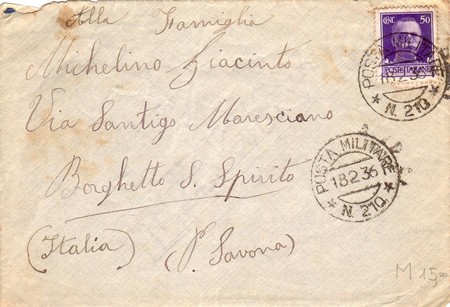 Alla Famiglia
CENT. 50
POSTE ITALIANE
Michelino Giacinto
Via Santigo Maresciano
Borghetto S. Spirito
(Italia) (P. Savona)
POSTA MILITARE
18.2.36
N. 210
POSTA MILITARE
18.2.36
N. 210
M 15,00